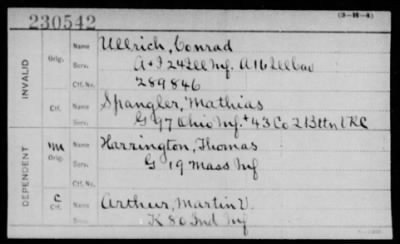 230542
(3-H-4)
INVALID
Orig. Name Ullrich, Conrad
Serv. A & I 24 Ill Inf. A 16 Ill Cav
Ctf. No. 289846
Ctf. Name Spangler, Mathias
Serv. G 97 Ohio Inf. & 43 Co 2 Bttn VRC
DEPENDENT
m Orig. Name Harrington, Thomas
Serv. G 19 Mass Inf
Ctf. No.
C Ctf. Name Arthur, Martin V.
Serv. K 80 Ind Inf